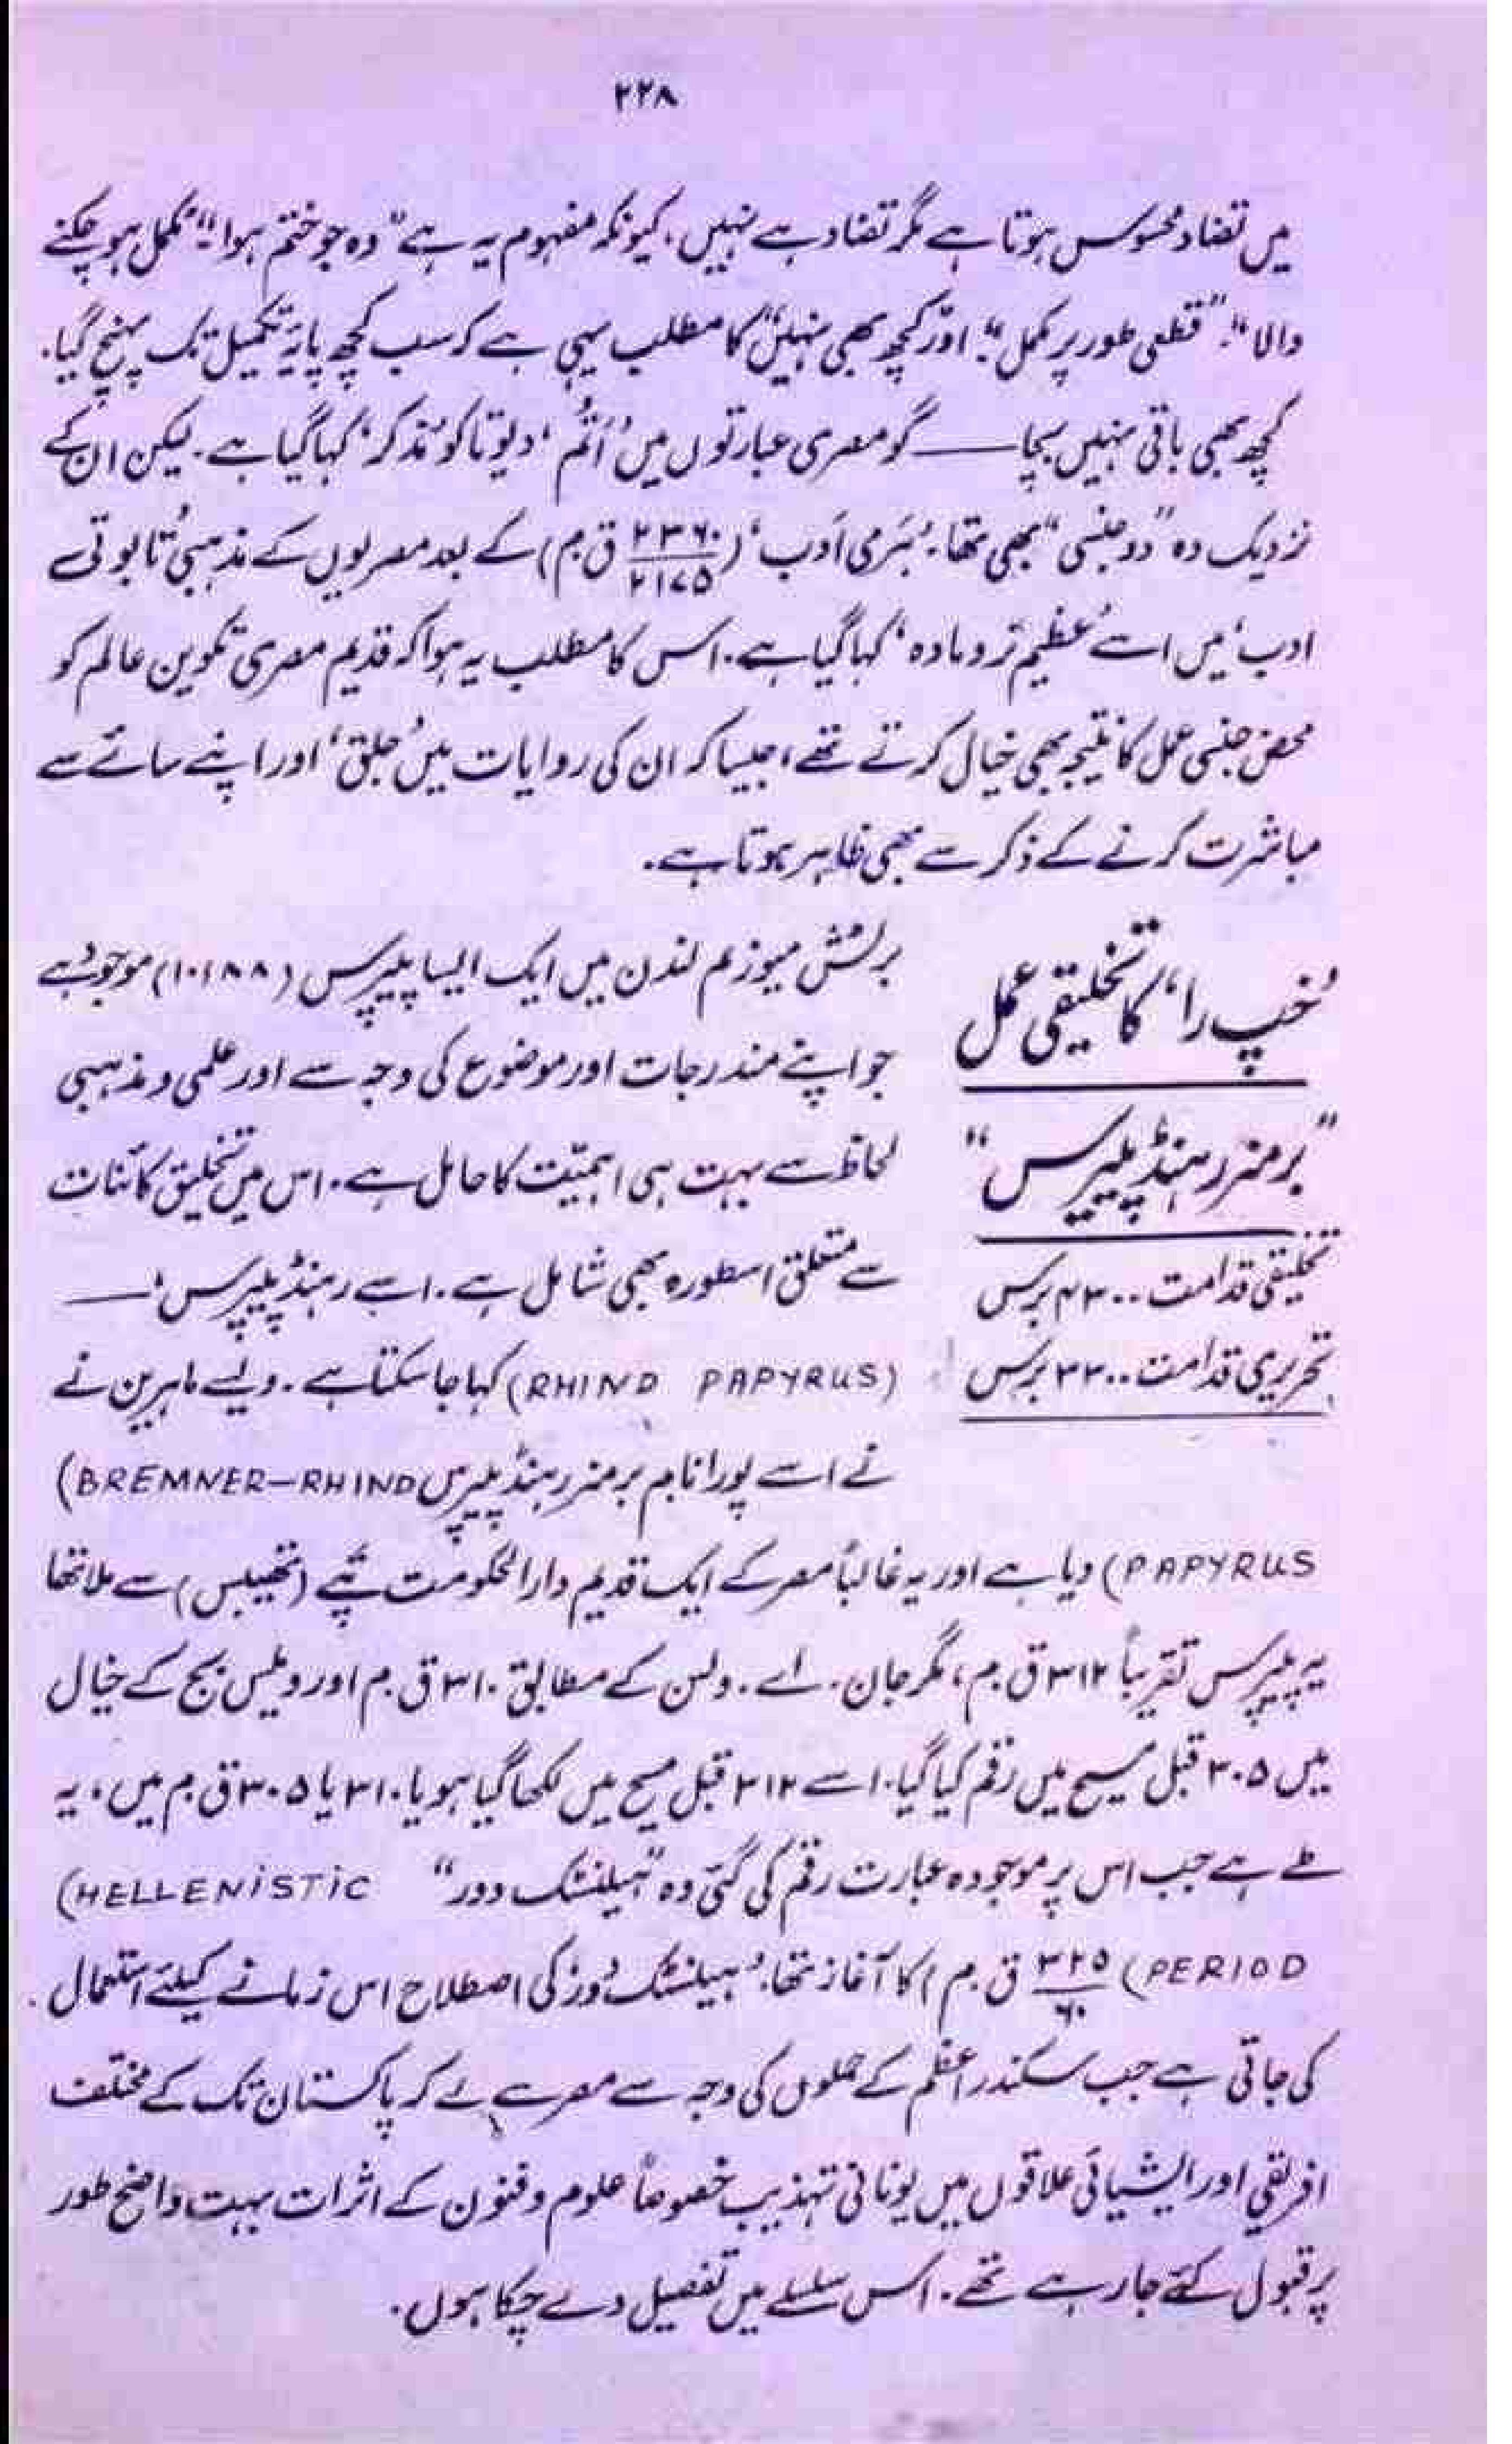 ۲۲۸
میں تضاد محسوس ہوتا ہے مگر تضاد ہے نہیں، کیونکہ مفہوم یہ ہے "وہ جو ختم ہوا"۔ "مکمل ہو چکنے
والا"۔ "قطعی طور پر مکمل"۔ اور "کچھ بھی نہیں" کا مطلب یہی ہے کہ سب کچھ پایۂ تکمیل تک پہنچ گیا۔
کچھ بھی باقی نہیں بچا —— گو مصری عبارتوں میں 'اَتُم' دیوتا کو 'مذکر' کہا گیا ہے۔ لیکن ان کے
نزدیک وہ "دو جنسی" بھی تھا۔ 'ہَرَمی اَدب' (۲۳۶۰/۲۱۷۵ ق م) کے بعد مصریوں کے مذہبی 'تابوتی
ادب' میں اسے 'عظیم نر و مادہ' کہا گیا ہے۔ اس کا مطلب یہ ہوا کہ قدیم مصری تکوین عالم کو
محض جنسی عمل کا نتیجہ بھی خیال کرتے تھے، جیسا کہ ان کی روایات میں 'جلق' اور اپنے سائے سے
مباشرت کرنے کے ذکر سے بھی ظاہر ہوتا ہے۔
'خپ را' کا تخلیقی عمل
"برمنر رہنڈ پیپرس"
تخلیقی قدامت ۔۔ ۴۳۰۰ برس
تحریری قدامت ۔۔ ۲۳۰۰ برس
برٹش میوزیم لندن میں ایک ایسا پیپرس (۱۰۱۸۸) موجود ہے
جو اپنے مندرجات اور موضوع کی وجہ سے اور علمی و مذہبی
لحاظ سے بہت ہی اہمیّت کا حامل ہے۔ اس میں تخلیق کائنات
سے متعلق اسطورہ بھی شامل ہے۔ اسے 'رہنڈ پیپرس' ——
(RHIND PAPYRUS) کہا جا سکتا ہے۔ ویسے ماہرین نے
نے اسے پورا نام برمنر رہنڈ پیپرس (BREMNER-RHIND
PAPYRUS) دیا ہے اور یہ غالباً مصر کے ایک قدیم دارالحکومت تیپے (تھیبس) سے ملا تھا
یہ پیپرس تقریباً ۳۱۲ ق م، مگر جان۔ اے۔ ولسن کے مطابق ۳۱۰ ق م اور ویلس بج کے خیال
میں ۳۰۵ قبل مسیح میں رقم کیا گیا۔ اسے ۳۱۲ قبل مسیح میں لکھا گیا ہو یا ۳۱۰ یا ۳۰۵ ق م میں، یہ
طے ہے جب اس پر موجودہ عبارت رقم کی گئی وہ "ہیلنسٹک دور" (HELLENISTIC
PERIOD) ۳۲۵/۶۰ ق م) کا آغاز تھا۔ 'ہیلنسٹک دور' کی اصطلاح اس زمانے کیلئے استعمال
کی جاتی ہے جب سکندر اعظم کے حملوں کی وجہ سے مصر سے لے کر پاکستان تک کے مختلف
افریقی اور ایشیائی علاقوں میں یونانی تہذیب خصوصاً علوم و فنون کے اثرات بہت واضح طور
پر قبول کئے جا رہے تھے۔ اس سلسلے میں تفصیل دے چکا ہوں۔